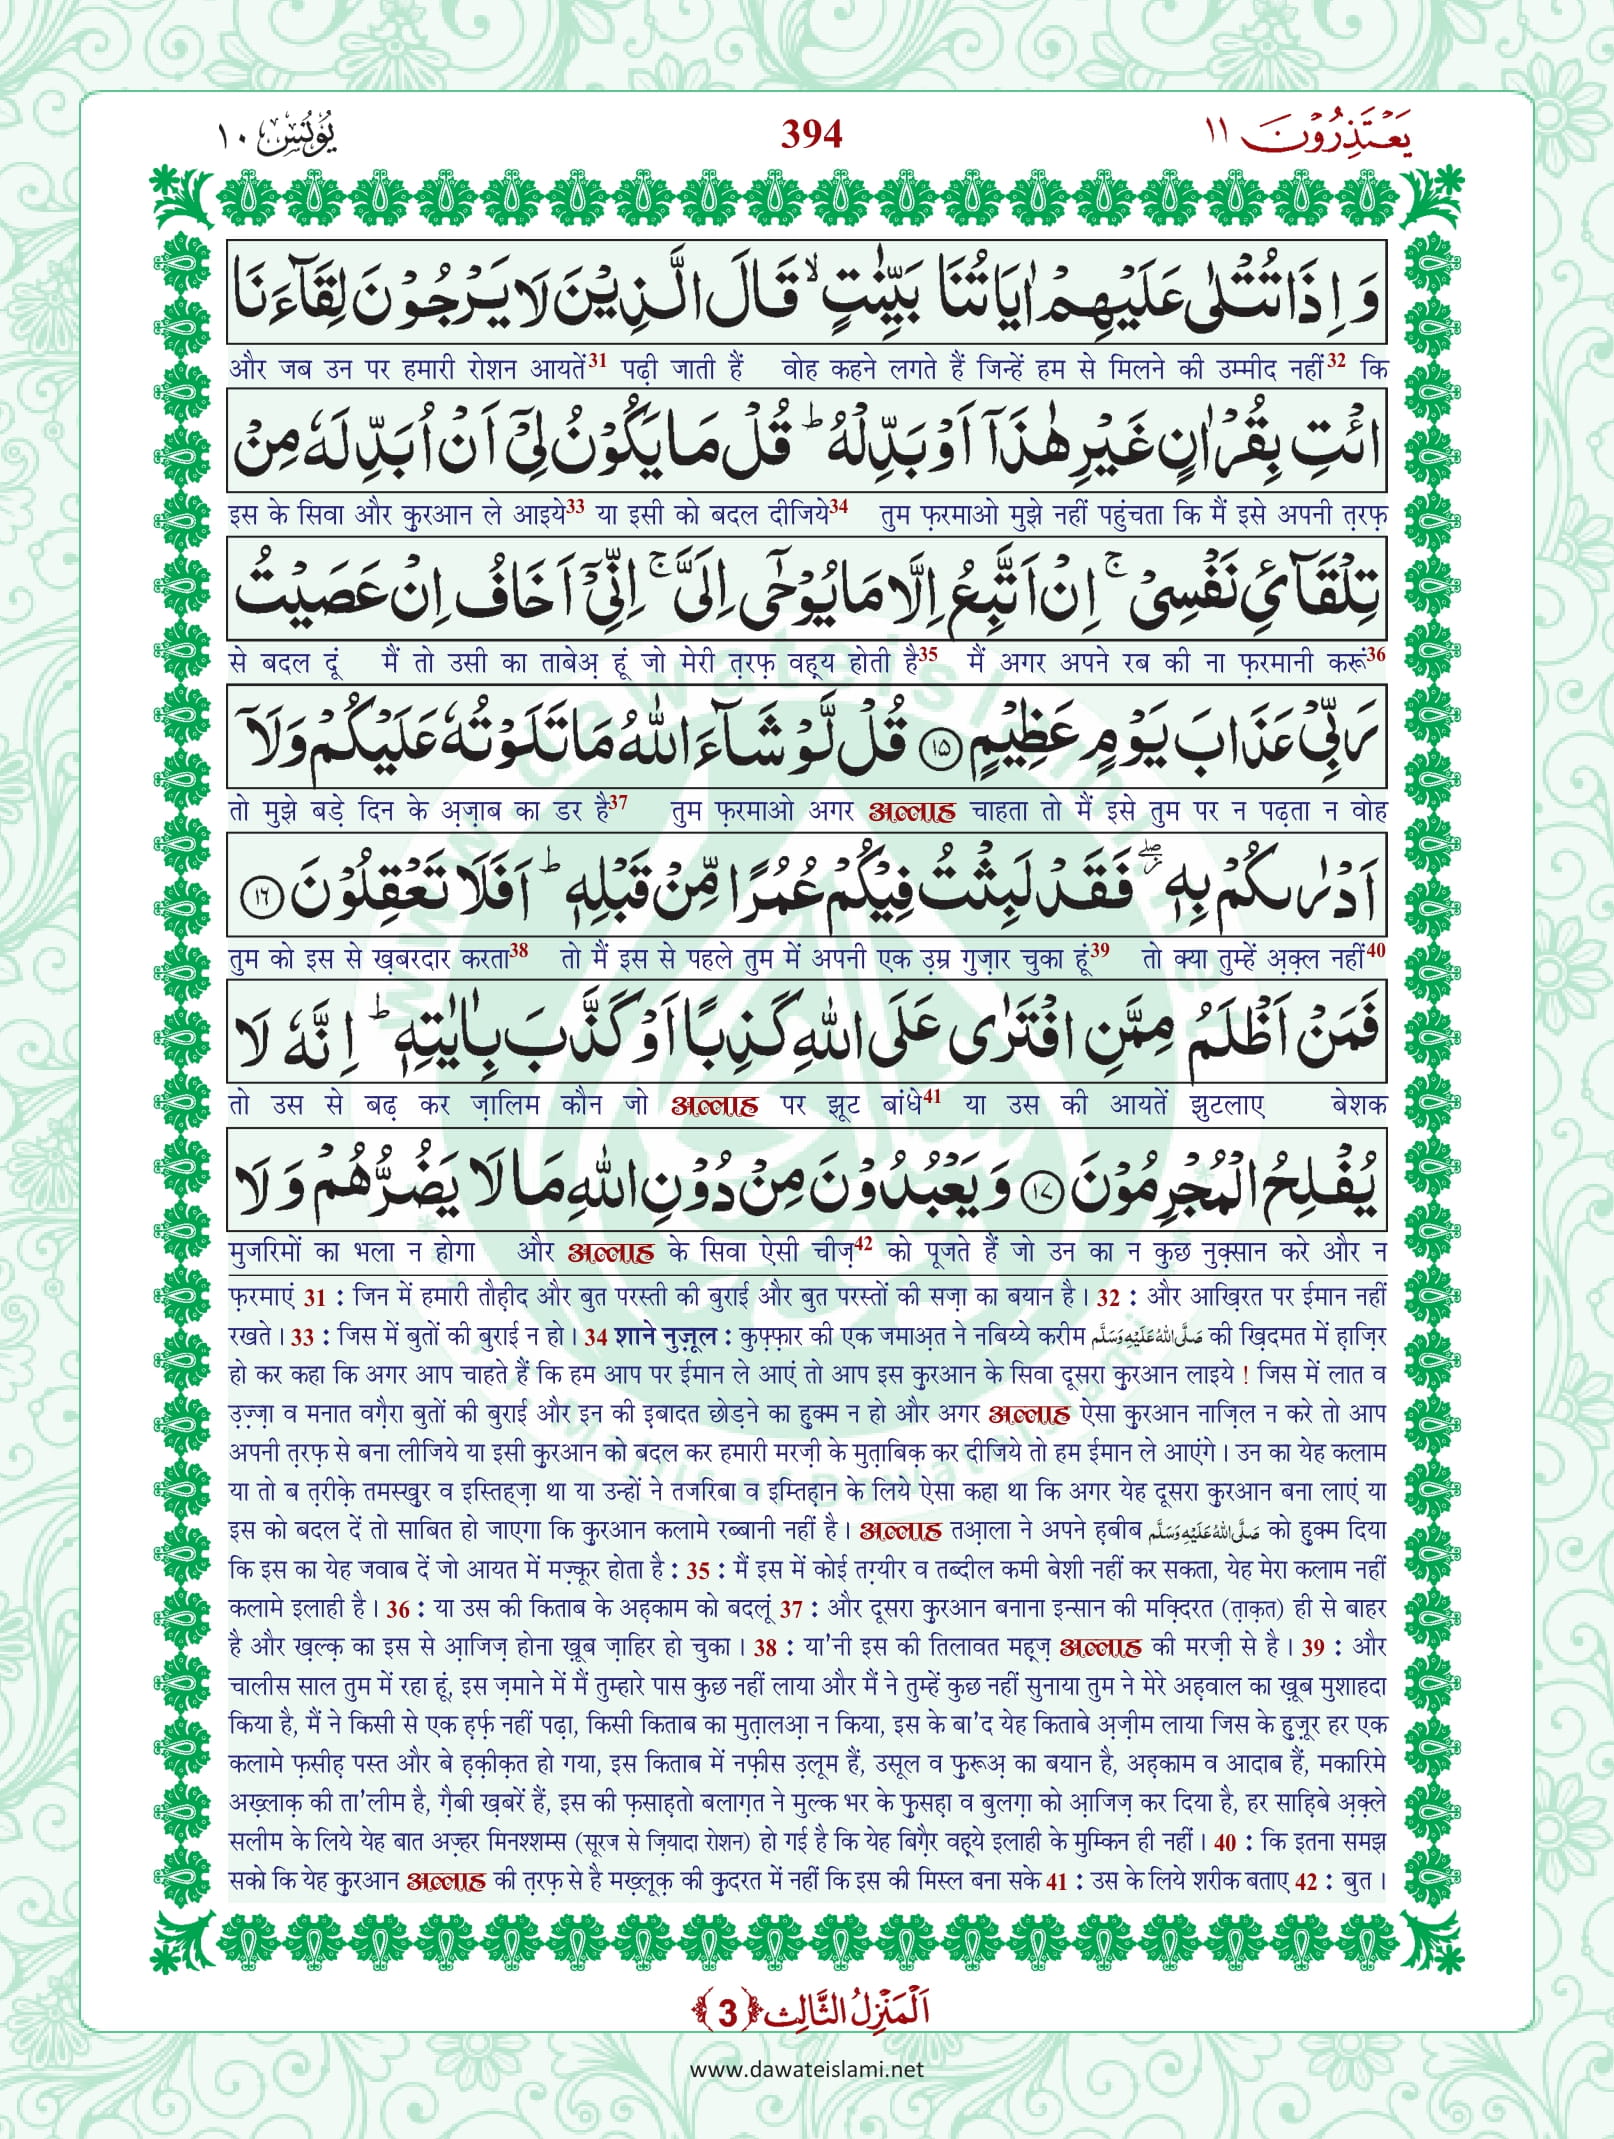 يَعْتَذِرُوْنَ ١١ 394 يُوْنُس ١٠
وَ اِذَا تُتْلٰى عَلَيْهِمْ اٰيَاتُنَا بَيِّنٰتٍ ۙ قَالَ الَّذِيْنَ لَا يَرْجُوْنَ لِقَآءَنَا
और जब उन पर हमारी रोशन आयतें31 पढ़ी जाती हैं वोह कहने लगते हैं जिन्हें हम से मिलने की उम्मीद नहीं32 कि
ائْتِ بِقُرْاٰنٍ غَيْرِ هٰذَاۤ اَوْ بَدِّلْهُ ؕ قُلْ مَا يَكُوْنُ لِيْۤ اَنْ اُبَدِّلَهٗ مِنْ
इस के सिवा और क़ुरआन ले आइये33 या इसी को बदल दीजिये34 तुम फ़रमाओ मुझे नहीं पहुंचता कि मैं इसे अपनी त़रफ़
تِلْقَآئِ نَفْسِيْ ۚ اِنْ اَتَّبِعُ اِلَّا مَا يُوْحٰۤى اِلَيَّ ۚ اِنِّيْۤ اَخَافُ اِنْ عَصَيْتُ
से बदल दूं मैं तो उसी का ताबेअ़ हूं जो मेरी त़रफ़ वह़्य होती है35 मैं अगर अपने रब की ना फ़रमानी करूं36
رَبِّيْ عَذَابَ يَوْمٍ عَظِيْمٍ ﴿۱۵﴾ قُلْ لَّوْ شَآءَ اللّٰهُ مَا تَلَوْتُهٗ عَلَيْكُمْ وَلَاۤ
तो मुझे बड़े दिन के अ़ज़ाब का डर है37 तुम फ़रमाओ अगर अल्लाह चाहता तो मैं इसे तुम पर न पढ़ता न वोह
اَدْرٰىكُمْ بِهٖ ۖؗ فَقَدْ لَبِثْتُ فِيْكُمْ عُمُرًا مِّنْ قَبْلِهٖ ؕ اَفَلَا تَعْقِلُوْنَ ﴿۱۶﴾
तुम को इस से ख़बरदार करता38 तो मैं इस से पहले तुम में अपनी एक उ़म्र गुज़ार चुका हूं39 तो क्या तुम्हें अ़क़्ल नहीं40
فَمَنْ اَظْلَمُ مِمَّنِ افْتَرٰى عَلَى اللّٰهِ كَذِبًا اَوْ كَذَّبَ بِاٰيٰتِهٖ ؕ اِنَّهٗ لَا
तो उस से बढ़ कर ज़ालिम कौन जो अल्लाह पर झूट बांधे41 या उस की आयतें झुटलाए बेशक
يُفْلِحُ الْمُجْرِمُوْنَ ﴿۱۷﴾ وَ يَعْبُدُوْنَ مِنْ دُوْنِ اللّٰهِ مَا لَا يَضُرُّهُمْ وَ لَا
मुजरिमों का भला न होगा और अल्लाह के सिवा ऐसी चीज़42 को पूजते हैं जो उन का न कुछ नुक़्सान करे और न
फ़रमाएं 31 : जिन में हमारी तौह़ीद और बुत परस्ती की बुराई और बुत परस्तों की सज़ा का बयान है। 32 : और आख़िरत पर ईमान नहीं
रखते। 33 : जिस में बुतों की बुराई न हो। 34 शाने नुज़ूल : कुफ़्फ़ार की एक जमाअ़त ने नबिय्ये करीम صَلَّى اللهُ عَلَيْهِ وَسَلَّم की ख़िदमत में ह़ाज़िर
हो कर कहा कि अगर आप चाहते हैं कि हम आप पर ईमान ले आएं तो आप इस क़ुरआन के सिवा दूसरा क़ुरआन लाइये ! जिस में लात व
उ़ज़्ज़ा व मनात वग़ैरा बुतों की बुराई और इन की इबादत छोड़ने का हुक्म न हो और अगर अल्लाह ऐसा क़ुरआन नाज़िल न करे तो आप
अपनी त़रफ़ से बना लीजिये या इसी क़ुरआन को बदल कर हमारी मरज़ी के मुत़ाबिक़ कर दीजिये तो हम ईमान ले आएंगे। उन का येह कलाम
या तो ब त़रीक़े तमस्खुर व इस्तिह्ज़ा था या उन्हों ने तजरिबा व इम्तिह़ान के लिये ऐसा कहा था कि अगर येह दूसरा क़ुरआन बना लाएं या
इस को बदल दें तो साबित हो जाएगा कि क़ुरआन कलामे रब्बानी नहीं है। अल्लाह तआ़ला ने अपने ह़बीब صَلَّى اللهُ عَلَيْهِ وَسَلَّم को हुक्म दिया
कि इस का येह जवाब दें जो आयत में मज़्कूर होता है : 35 : मैं इस में कोई तग़्यीर व तब्दील कमी बेशी नहीं कर सकता, येह मेरा कलाम नहीं
कलामे इलाही है। 36 : या उस की किताब के अह़काम को बदलूं 37 : और दूसरा क़ुरआन बनाना इन्सान की मक़्दिरत (त़ाक़त) ही से बाहर
है और ख़ल्क़ का इस से आ़जिज़ होना ख़ूब ज़ाहिर हो चुका। 38 : या'नी इस की तिलावत मह़्ज़ अल्लाह की मरज़ी से है। 39 : और
चालीस साल तुम में रहा हूं, इस ज़माने में मैं तुम्हारे पास कुछ नहीं लाया और मैं ने तुम्हें कुछ नहीं सुनाया तुम ने मेरे अह़वाल का ख़ूब मुशाहदा
किया है, मैं ने किसी से एक ह़र्फ़ नहीं पढ़ा, किसी किताब का मुत़ालआ़ न किया, इस के बा'द येह किताबे अ़ज़ीम लाया जिस के हुज़ूर हर एक
कलामे फ़सीह़ पस्त और बे ह़क़ीक़त हो गया, इस किताब में नफ़ीस उ़लूम हैं, उसूल व फ़ुरूअ़ का बयान है, अह़काम व आदाब हैं, मकारिमे
अख़्लाक़ की ता'लीम है, ग़ैबी ख़बरें हैं, इस की फ़साह़तो बलाग़त ने मुल्क भर के फ़ुसह़ा व बुलग़ा को आ़जिज़ कर दिया है, हर साह़िबे अ़क़्ले
सलीम के लिये येह बात अज़्हर मिनश्शम्स (सूरज से ज़ियादा रोशन) हो गई है कि येह बिग़ैर वह़्ये इलाही के मुम्किन ही नहीं। 40 : कि इतना समझ
सको कि येह क़ुरआन अल्लाह की त़रफ़ से है मख़्लूक़ की क़ुदरत में नहीं कि इस की मिस्ल बना सके 41 : उस के लिये शरीक बताए 42 : बुत।
اَلْمَنْزِلُ الثَّالِث ﴿3﴾
www.dawateislami.net